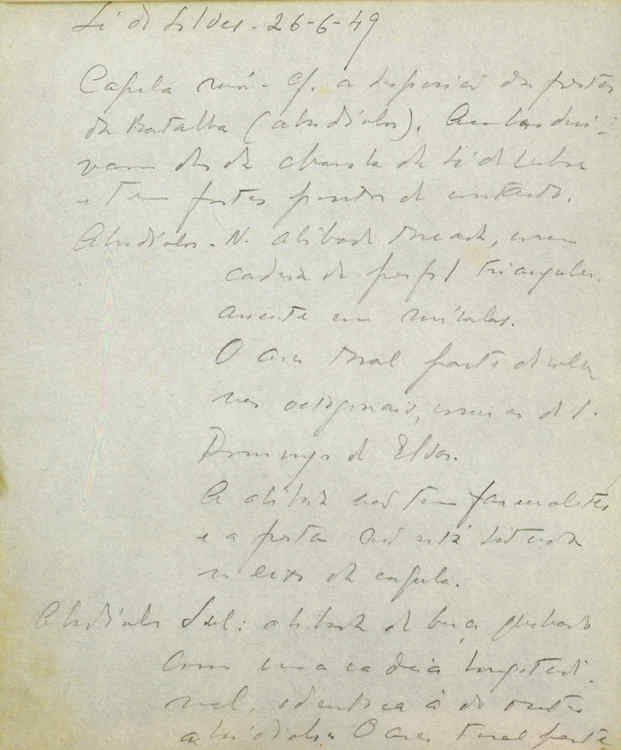 Sé de Silves - 26-6-49
Capela mór - Cf. a disposição das frestas
da Batalha (absidíolos). Ambas deri-
vam da da charola da Sé de Lisboa
e tem fortes pontos de contacto.
Absidíolos - N. abóbada truncada, com
cadeia de perfil triangular.
assente em mísulas.
O arco triunfal parte de colu
nas octogonais, como as de S.
Domingos de Elvas.
A abóbada não tem formaletes
e a fresta não está situada
no eixo da capela.
Absidíolo Sul: abóbada de berço quebrado
com uma cadeia longitudi-
nal, idêntica à do outro
absidíolo. O arco triunfal parte